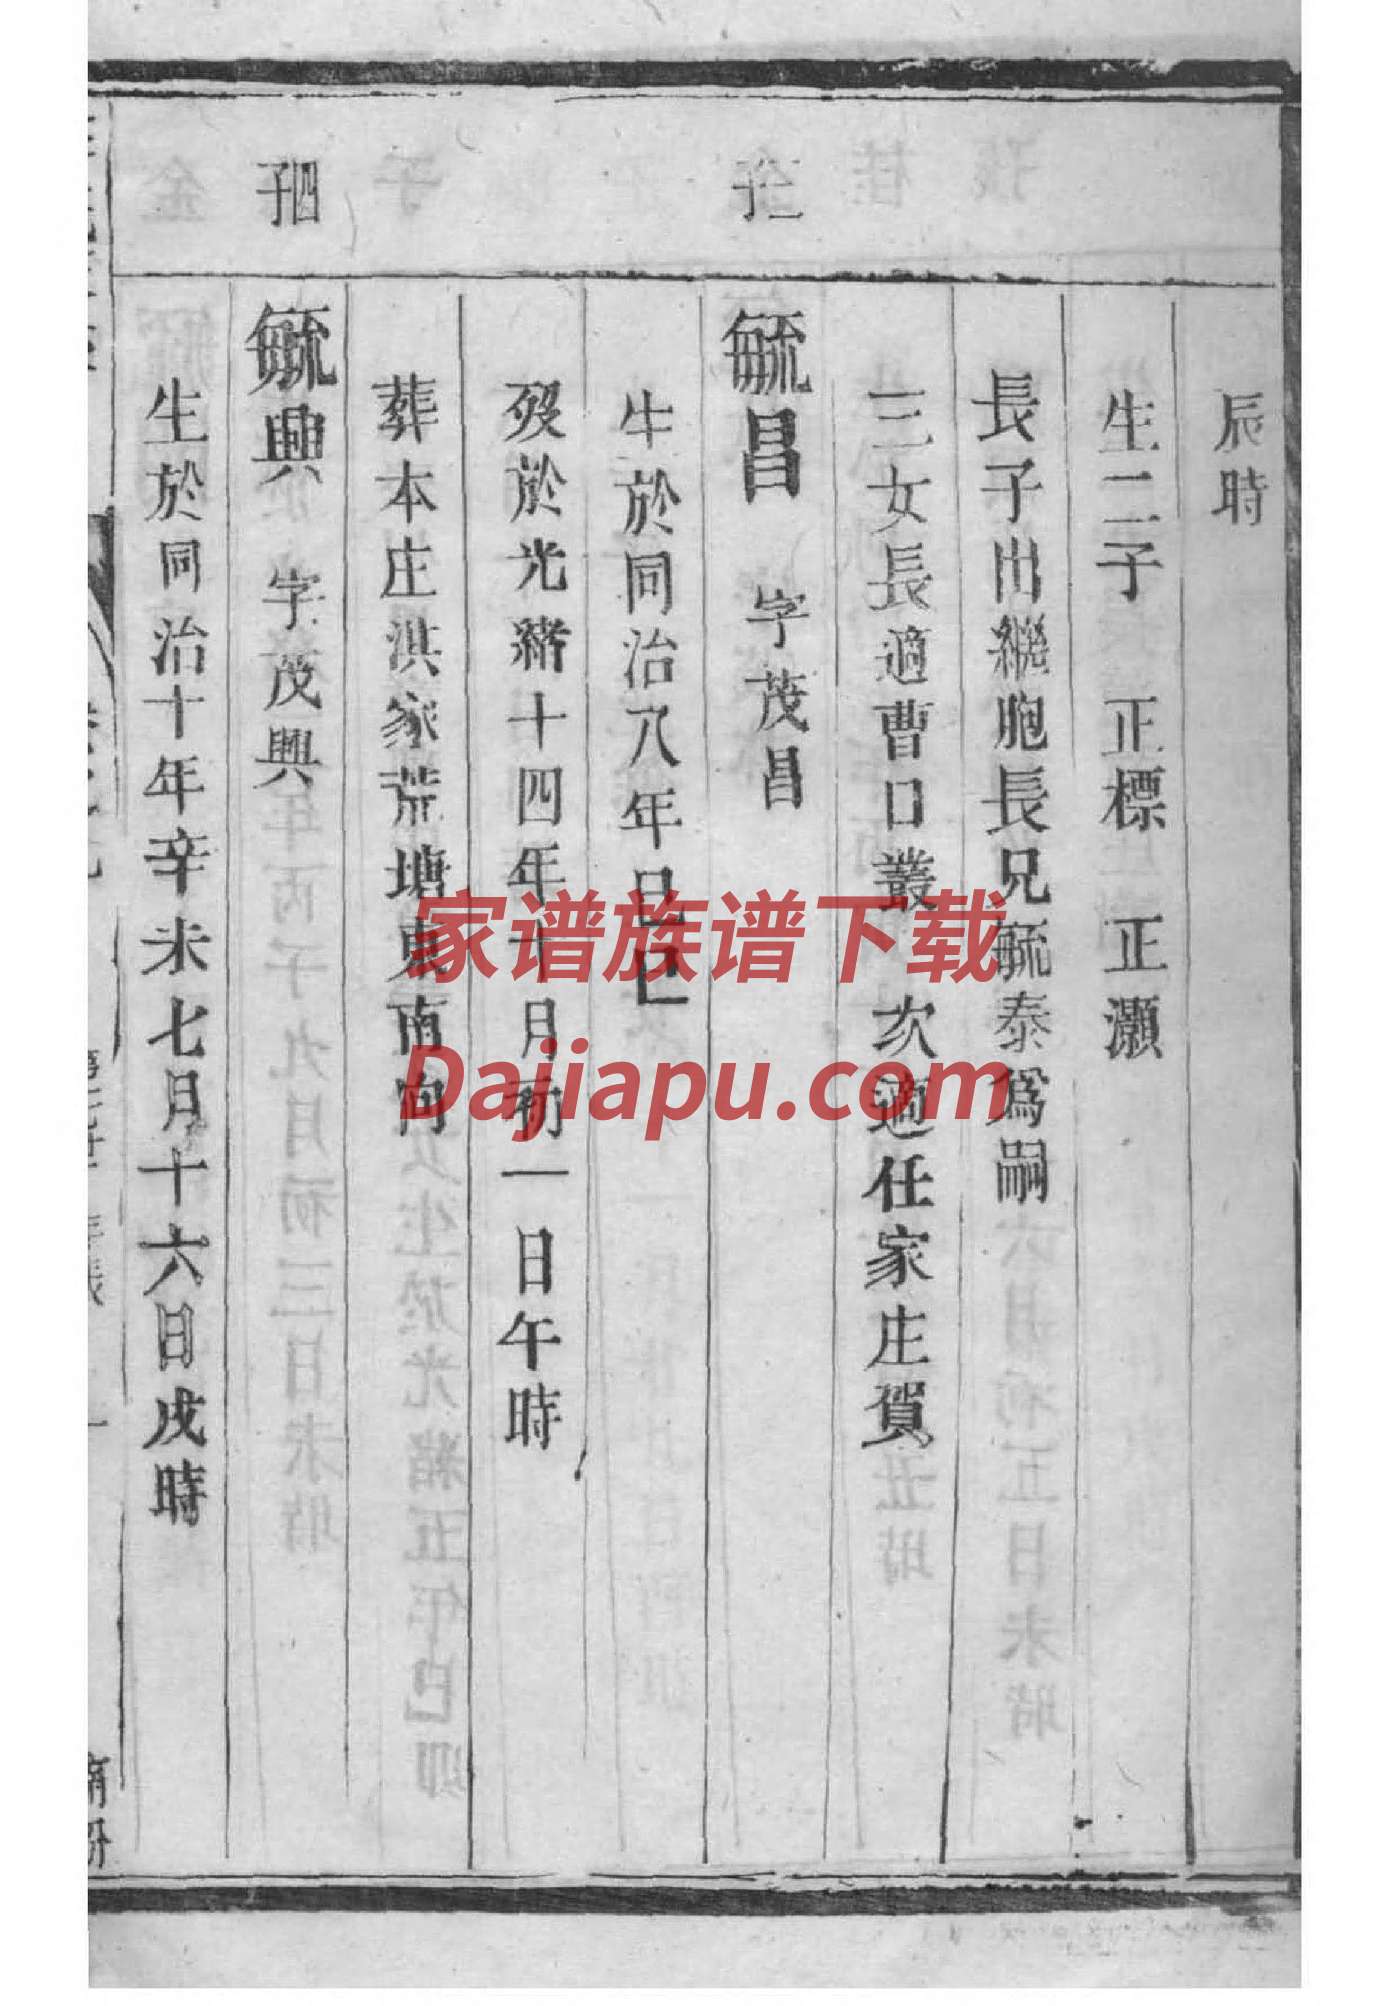 辰時
生二子 正標 正灝
長子出繼胞長兄毓泰爲嗣
三女長適曹口叢 次適任家庄賀
三子
毓昌 字茂昌
生於同治八年己巳
歿於光緒十四年十月初一日午時
葬本庄淇家荒塘東南向
四子
毓興 字茂興
生於同治十年辛未七月十六日戌時
家谱族谱下载
Dajiapu.com